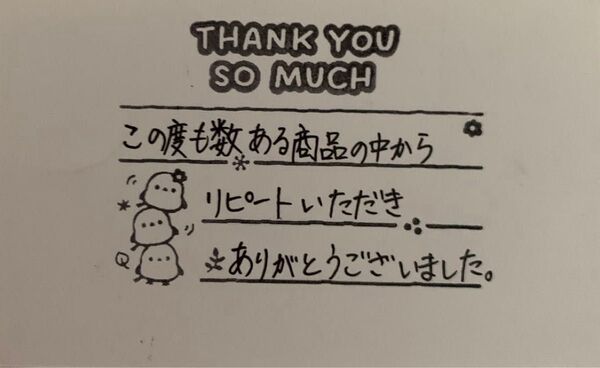 THANK YOU
SO MUCH
この度も数ある商品の中から
リピートいただき
ありがとうございました。